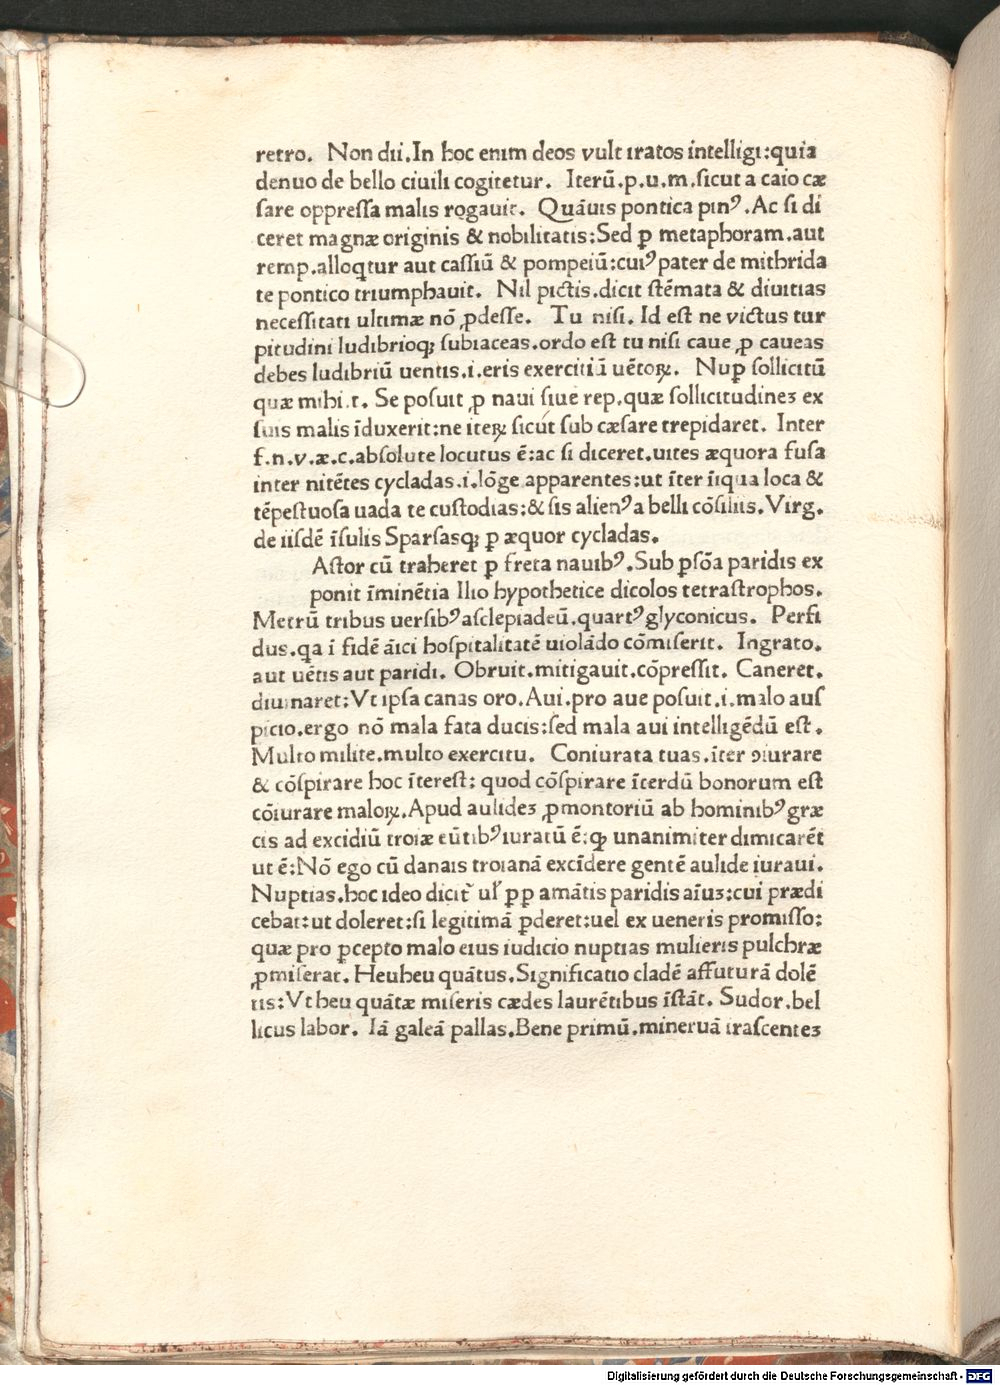 retro. Non dii.In hoc enim deos vult iratos intelligi:quia
denuo de bello ciuili cogitetur. Iterū.p.u.m.sicut a caio cæ
sare oppressa malis rogauit. Quāuis pontica pinꝰ.Ac si di
ceret magnæ originis & nobilitatis:Sed ꝑ metaphoram.aut
remp.alloqtur aut cassiū & pompeiū:cuiꝰ pater de mithrida
te pontico triumphauit. Nil pictis.dicit stēmata & diuitias
necessitati ultimæ nō ꝓdesse. Tu nisi. Id est ne victus tur
pitudini ludibrioqꝫ subiaceas.ordo est tu nisi caue ꝓ caueas
debes ludibriū uentis.i.eris exercitiū uētoꝝ. Nuꝑ sollicitū
quæ mihi.t. Se posuit ꝓ naui siue rep.quæ sollicitudineꝫ ex
suis malis īduxerit:ne iteꝝ sicut sub cæsare trepidaret. Inter
f.n.v.æ.c.absolute locutus ē:ac si diceret.uites æquora fusa
inter nitētes cycladas.i.lōge apparentes:ut īter īiqua loca &
tēpestuosa uada te custodias:& sis alienꝰ a belli cōsiliis. Virg.
de iisdē īsulis Sparsasqꝫ ꝑ æquor cycladas.
Astor cū traheret ꝑ freta nauibꝰ.Sub ꝑsōa paridis ex
ponit īminētia Ilio hypothetice dicolos tetrastrophos.
Metrū tribus uersibꝰ asclepiadeū.quartꝰ glyconicus. Perfi
dus.qa ī fidē āici hospitalitatē uiolādo cōmiserit. Ingrato.
aut uētis aut paridi. Obruit.mitigauit.cōpressit. Caneret.
diuinaret:Vt ipsa canas oro.Aui.pro aue posuit.i.malo aus
picio.ergo nō mala fata ducis:sed mala aui intelligēdū est.
Multo milite.multo exercitu. Coniurata tuas.īter ꝯiurare
& cōspirare hoc īterest: quod cōspirare īterdū bonorum est
cōiurare maloꝝ.Apud aulideꝫ ꝓmontoriū ab hominibꝰ græ
cis ad excidiū troiæ eūtibꝰ iuratū ē:qꝫ unanimiter dimicarēt
ut ē:Nō ego cū danais troianā excīdere gentē aulide iuraui.
Nuptias.hoc ideo dicit᷑ uł ꝑꝑ amātis paridis aīuꝫ:cui prædi
cebat:ut doleret:si legitimā ꝑderet:uel ex ueneris promisso:
quæ pro ꝑcepto malo eius iudicio nuptias mulieris pulchræ
ꝓmiserat. Heuheu quātus.Significatio cladē affuturā dolē
tis:Vt heu quātæ miseris cædes laurētibus īstāt. Sudor.bel
licus labor. Iā galeā pallas.Bene primū.mineruā irascenteꝫ
Digitalisierung gefördert durch die Deutsche Forschungsgemeinschaft - DFG